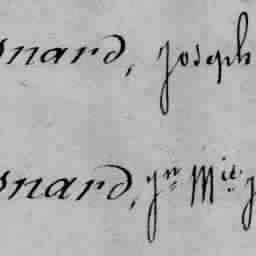 onard, Joseph
onard, Jn Mie J